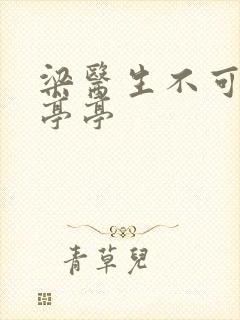 梁醫生不可
亭亭
青草兒